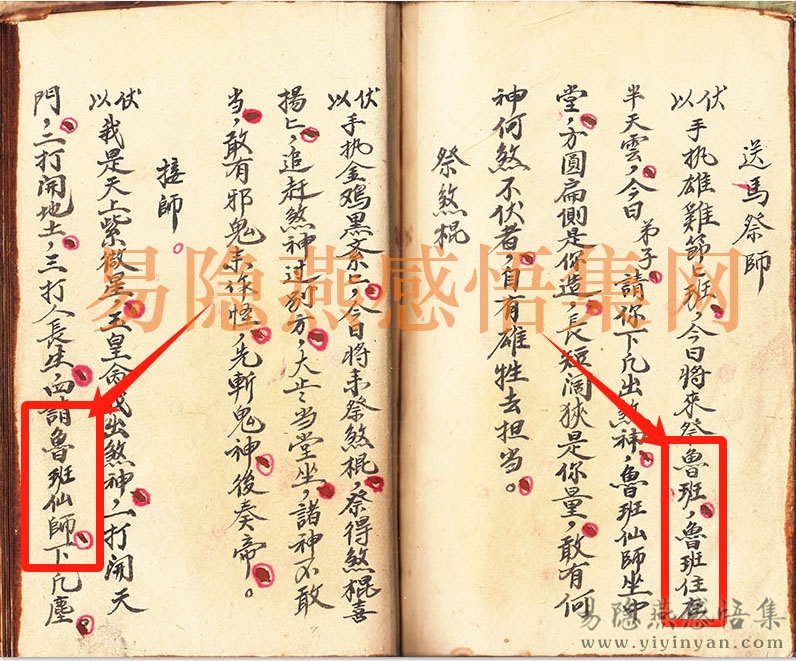 送馬祭師
伏以手执雄雞節七班，今日將來祭魯班，魯班住在
半天雲，今日弟子請你下凡出煞神，魯班仙師坐中
堂，方圓扁側是你造，長短闊狹是你量，敢有何
神何煞不伏者，自有雄牲去担当。
祭煞棍
伏以手执金鸡黑齐七，今日將来祭煞棍，祭得煞棍喜
揚匕，追赶煞神过别方，大步当堂坐，諸神不敢
当，敢有邪鬼来作怪，先斬鬼神後奏帝。
接師。
伏以我是天上紫微星，玉皇命我出煞神，一打開天
門，二打開地土，三打人長生，四請魯班仙師下凡塵。
易隐燕感悟集网
易隐燕感悟集
www.yiyinyan.com